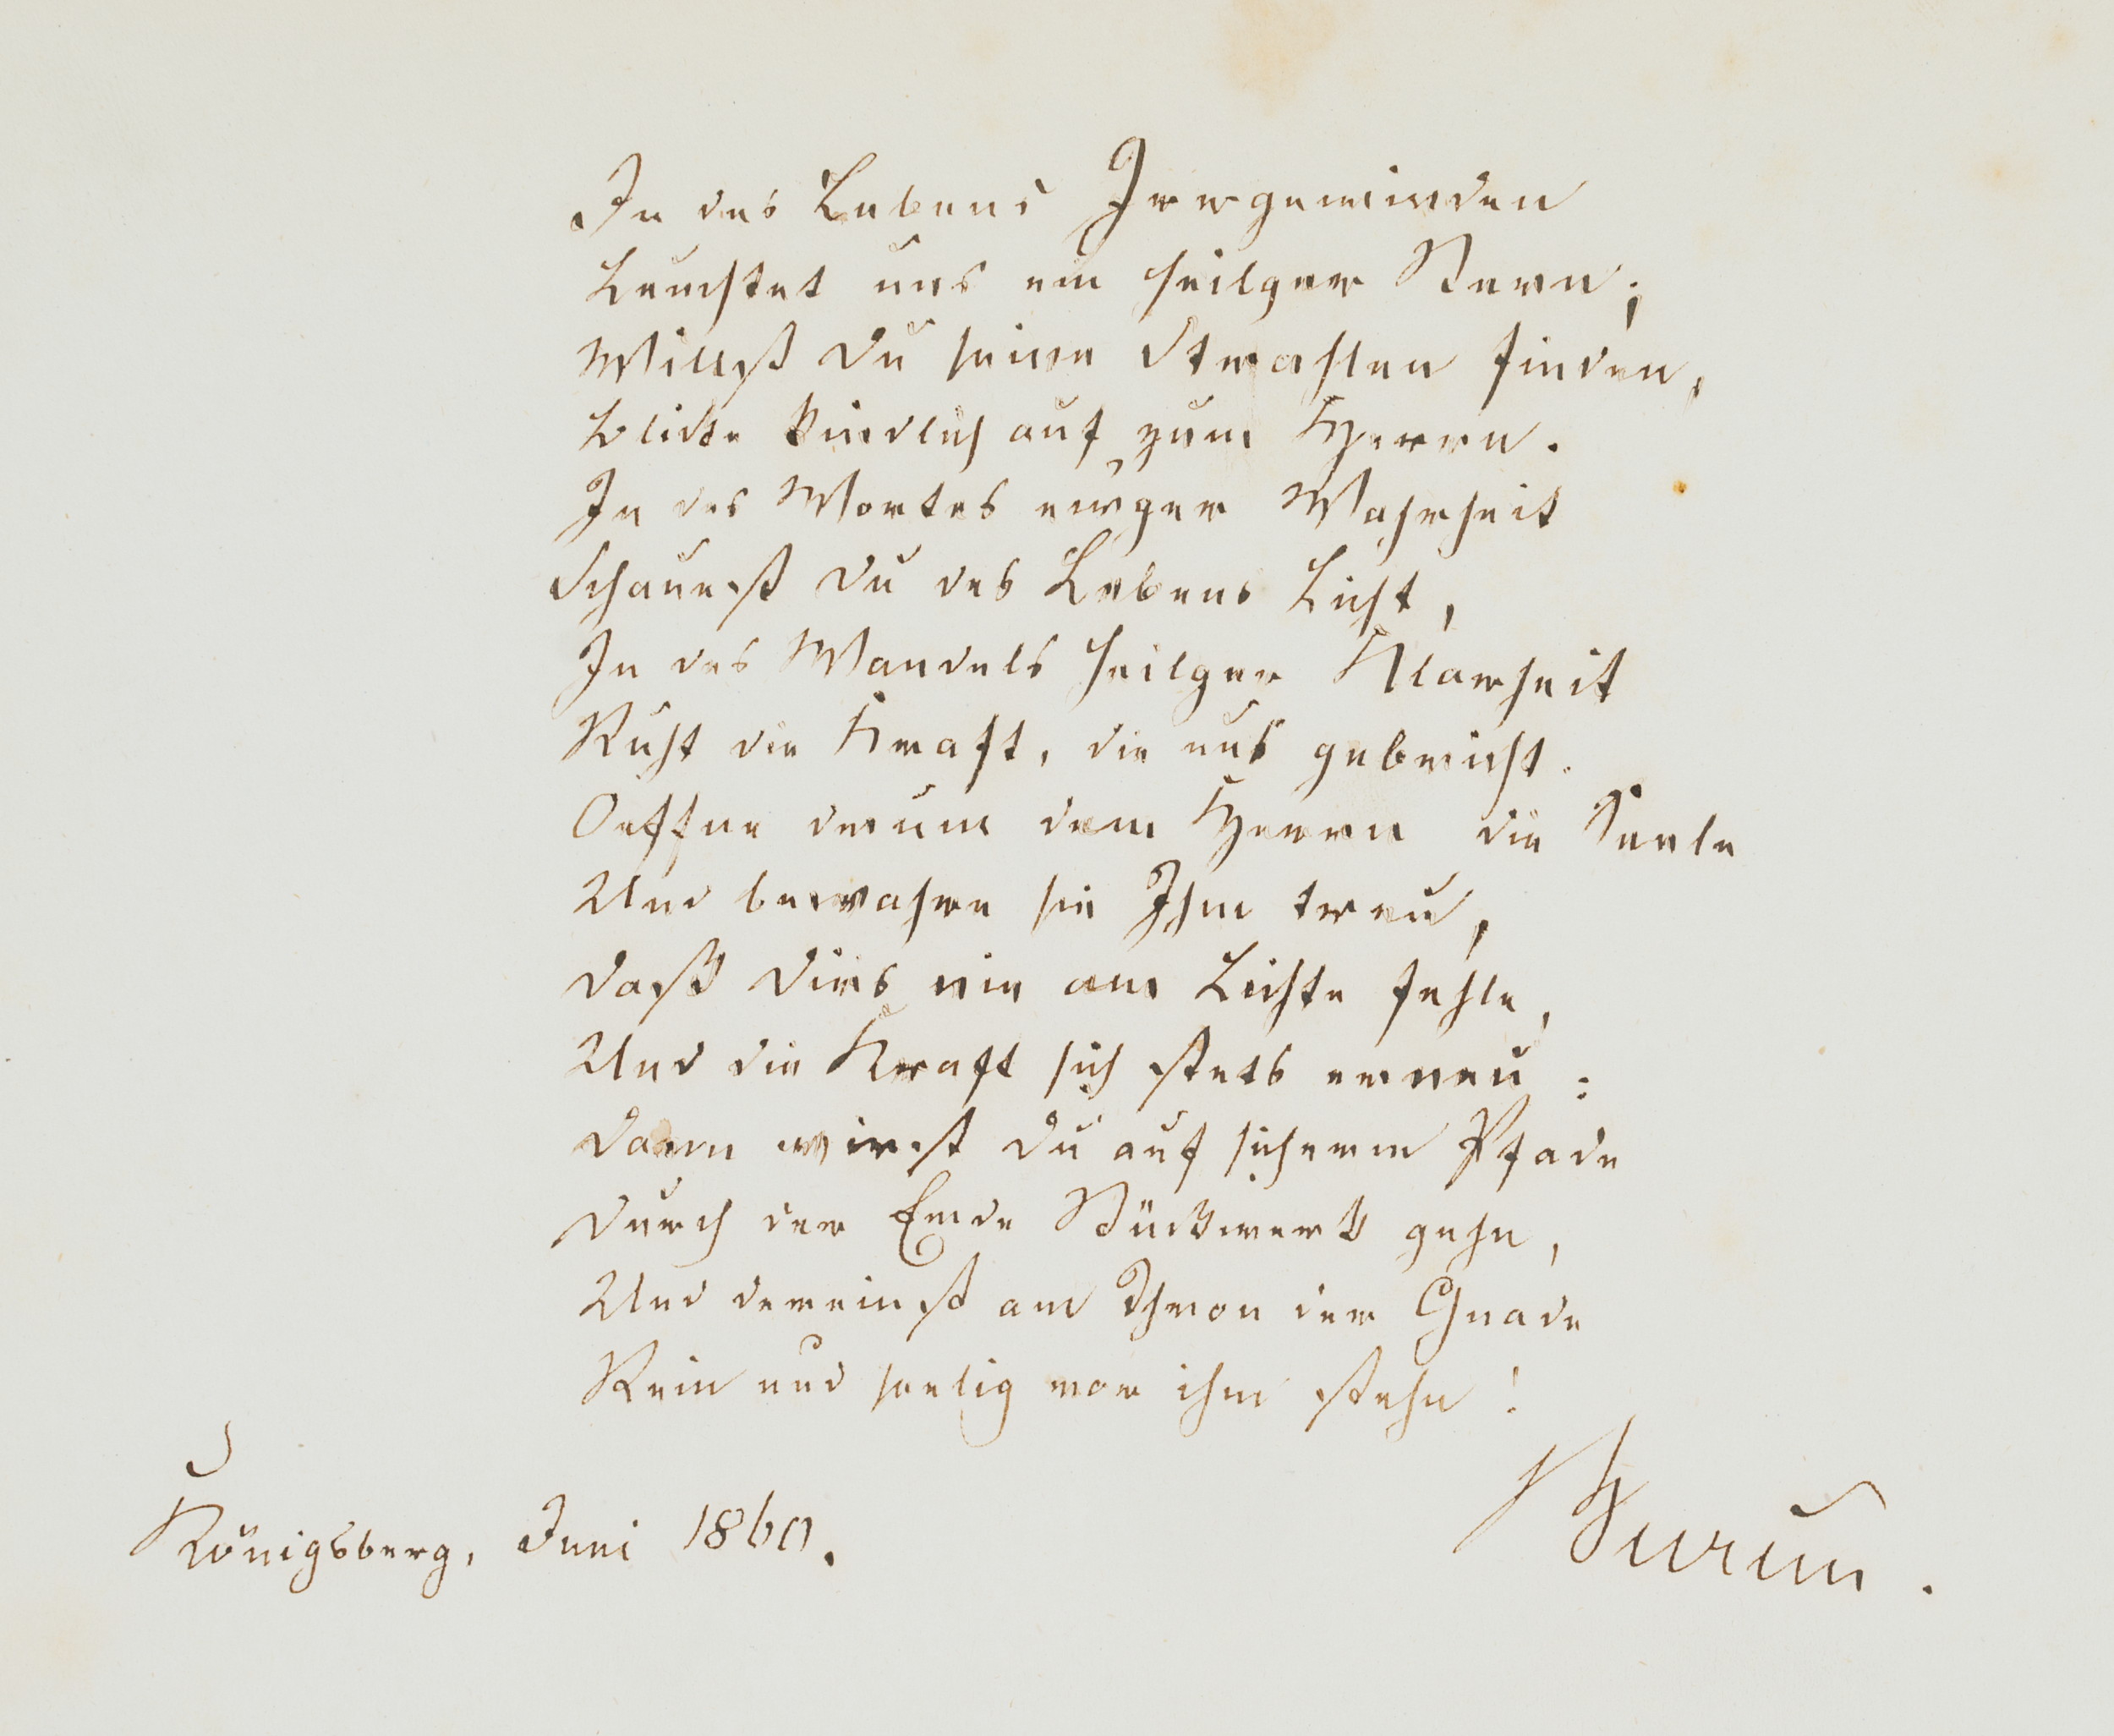 In des Lebens Irrgewinden
Leuchtet uns ein heilger Stern;
Willst Du seine Strahlen finden,
Blicke kindlich auf zum Herrn.
In des Wortes ew'ger Wahrheit
Schauest Du des Lebens Licht,
In des Wandels heilger Klarheit
Ruht die Kraft, die uns gebricht.
Oeffne drum dem Herrn die Seele
Und bewahre sie Ihm treu,
Daß Dirs nie am Lichte fehle,
Und die Kraft sich stets erneu:
Dann wirst Du auf sicherm Pfade
Durch der Erde Stückwerk gehn,
Und dereinst am Thron der Gnade
Rein und seelig vor ihm stehn!
Königsberg, Juni 1860.